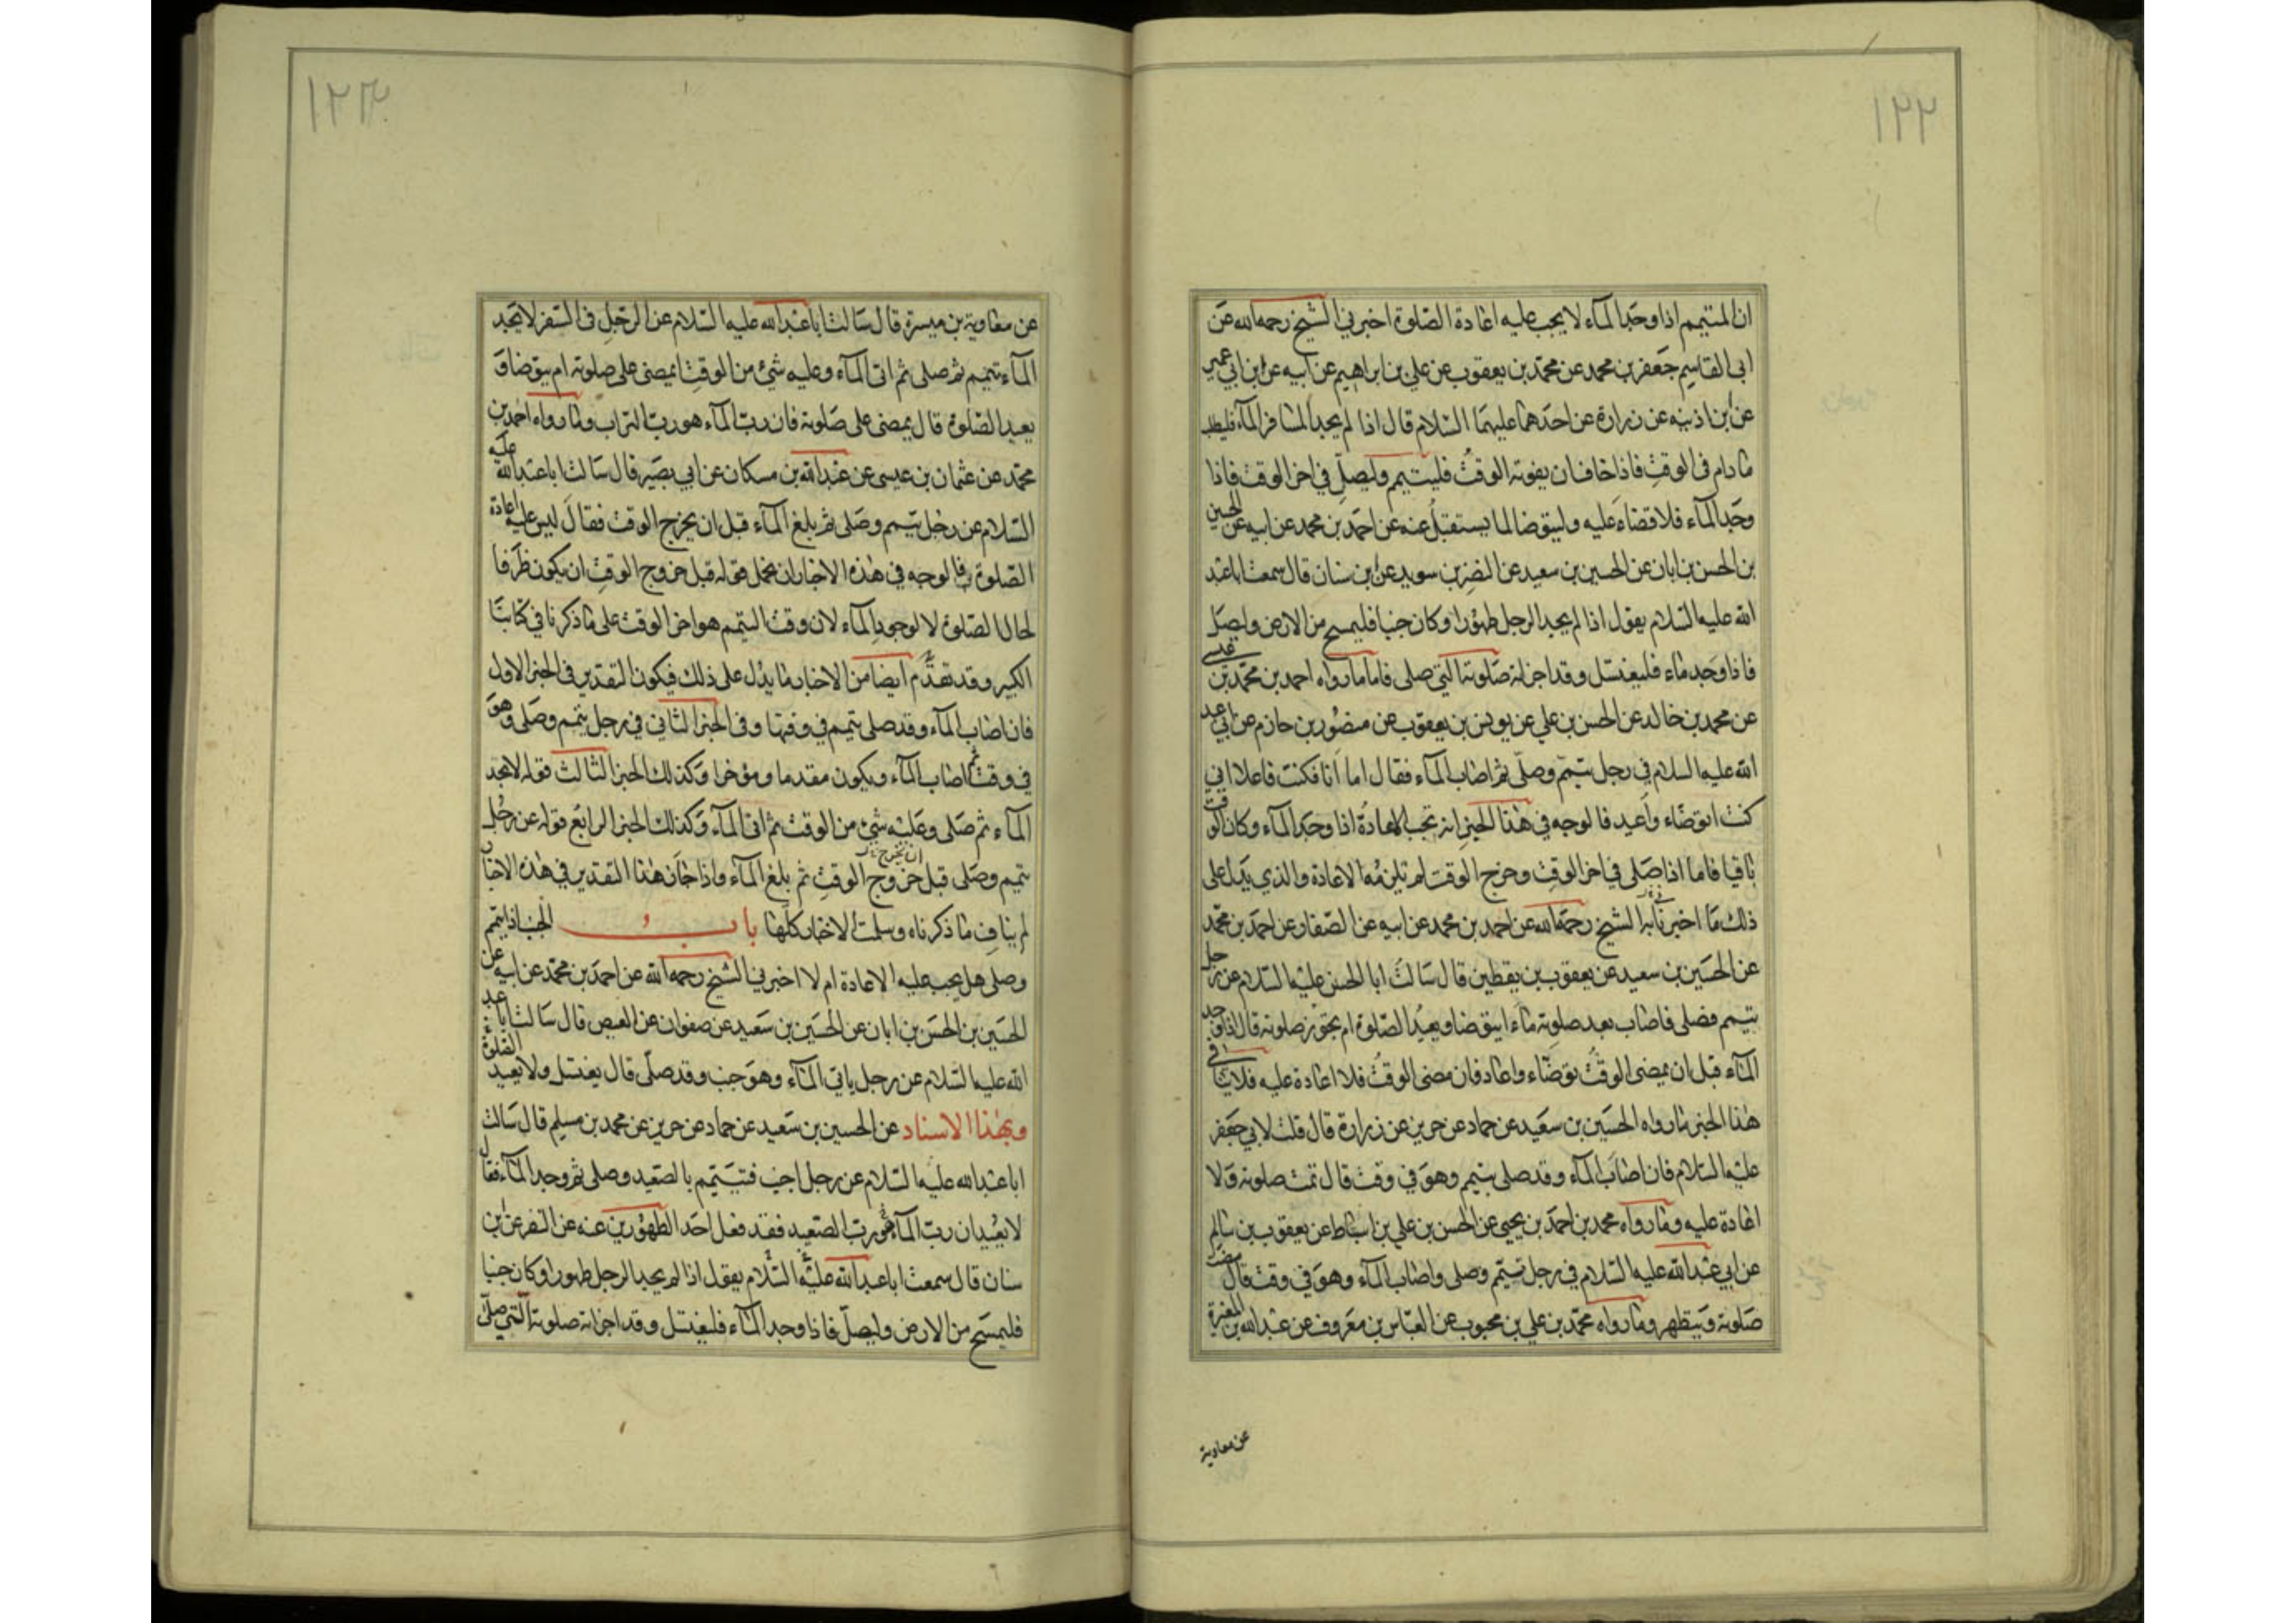 ١٢٢
ان المتيمم اذا وجد المآء لا يجب عليه اعادة الصلوة اخبرني الشيخ رحمه الله عن
ابي القاسم جعفر بن محمد عن محمد بن يعقوب عن علي بن ابراهيم عن ابيه عن ابن ابي عمير
عن ابن اذينه عن زرارة عن احدهما عليهما السلام قال اذا لم يجد المسافر المآء فليطلب
ما دام في الوقت فاذا خاف ان يفوته الوقت فليتيمم وليصل في اخر الوقت فاذا
وجد المآء فلا قضاء عليه وليتوضا لما يستقبل عنه عن احمد بن محمد عن ابيه عن الحسين
بن الحسن بن ابان عن الحسين بن سعيد عن النضر بن سويد عن ابن سنان قال سمعت ابا عبد
الله عليه السلام يقول اذا لم يجد الرجل طهورا وكان جنبا فليمسح من الارض وليصل
فاذا وجد ماء فليغتسل وقد اجزاته صلوته التي صلى فاما ما رواه احمد بن محمد بن عيسى
عن محمد بن خالد عن الحسن بن علي عن يونس بن يعقوب عن منصور بن حازم عن ابي عبد
الله عليه السلام في رجل تيمم وصلى ثم اصاب المآء فقال اما انا فكنت فاعلا اني
كنت اتوضاء واعيد فالوجه في هذا الخبر انه تجب الاعادة اذا وجد المآء وكان الوقت
باقيا فاما اذا صلى في اخر الوقت وخرج الوقت لم تلزمه الاعادة والذي يدل على
ذلك ما اخبرنا به الشيخ رحمه الله عن احمد بن محمد عن ابيه عن الصفار عن احمد بن محمد
عن الحسين بن سعيد عن يعقوب بن يقطين قال سالت ابا الحسن عليه السلام عن رجل
تيمم فصلى فاصاب بعد صلوته ماء ايتوضا ويعيد الصلوة ام يجوز صلوته قال اذا وجد
المآء قبل ان يمضي الوقت توضاء واعاد فان مضى الوقت فلا اعادة عليه فلا ينافي
هذا الخبر ما رواه الحسين بن سعيد عن حماد عن حريز عن زرارة قال قلت لابي جعفر
عليه السلام فان اصاب المآء وقد صلى بتيمم وهو في وقت قال تمت صلوته ولا
اعادة عليه وما رواه محمد بن احمد بن يحيى عن الحسن بن علي بن اسباط عن يعقوب بن سالم
عن ابي عبد الله عليه السلام في رجل تيمم وصلى واصاب المآء وهو في وقت قال مضت
صلوته ويتطهر وما رواه محمد بن علي بن محبوب عن العباس بن معروف عن عبد الله بن المغيرة
عن معاوية
١٢٣
عن معاوية بن ميسرة قال سالت ابا عبد الله عليه السلام عن الرجل في السفر لا يجد
المآء تيمم ثم صلى ثم اتى المآء وعليه شيء من الوقت ايمضي على صلوته ام يتوضا و
يعيد الصلوة قال يمضي على صلوته فان رب المآء هو رب التراب وما رواه احمد بن
محمد عن عثمان بن عيسى عن عبد الله بن مسكان عن ابي بصير قال سالت ابا عبد الله عليه
السلام عن رجل تيمم وصلى ثم بلغ المآء قبل ان يخرج الوقت فقال ليس عليه اعادة
الصلوة فالوجه في هذه الاخبار ان يحمل قوله قبل خروج الوقت ان يكون ظرفا
لحال الصلوة لا لوجود المآء لان وقت التيمم هو اخر الوقت على ما ذكرنا في كتابنا
الكبير وقد تقدم ايضا من الاخبار ما يدل على ذلك فيكون التقدير في الخبر الاول
فان اصاب المآء وقد صلى بتيمم في وقتها وفي الخبر الثاني في رجل تيمم وصلى وهو
في وقت ثم اصاب المآء ويكون مقدما ومؤخرا وكذلك الخبر الثالث قوله لا يجد
المآء ثم صلى وعليه شيء من الوقت ثم اتى المآء وكذلك الخبر الرابع قوله عن رجل
تيمم وصلى قبل خروج الوقت ثم بلغ المآء واذا كان هذا التقدير في هذه الاخبار
ان يخرج
لم يناف ما ذكرناه وسلمت الاخبار كلها باب الجنب اذا تيمم
وصلى هل يجب عليه الاعادة ام لا اخبرني الشيخ رحمه الله عن احمد بن محمد عن ابيه عن
الحسين بن الحسن بن ابان عن الحسين بن سعيد عن صفوان عن العيص قال سالت ابا عبد
الله عليه السلام عن رجل ياتي المآء وهو جنب وقد صلى قال يغتسل ولا يعيد الصلوة
وبهذا الاسناد عن الحسين بن سعيد عن حماد عن حريز عن محمد بن مسلم قال سالت
ابا عبد الله عليه السلام عن رجل اجنب فتيمم بالصعيد وصلى ثم وجد المآء فقال
لا يعيد ان رب المآء هو رب الصعيد فقد فعل احد الطهورين عنه عن النضر عن ابن
سنان قال سمعت ابا عبد الله عليه السلام يقول اذا لم يجد الرجل طهورا وكان جنبا
فليمسح من الارض وليصل فاذا وجد المآء فليغتسل وقد اجزاته صلوته التي صلى